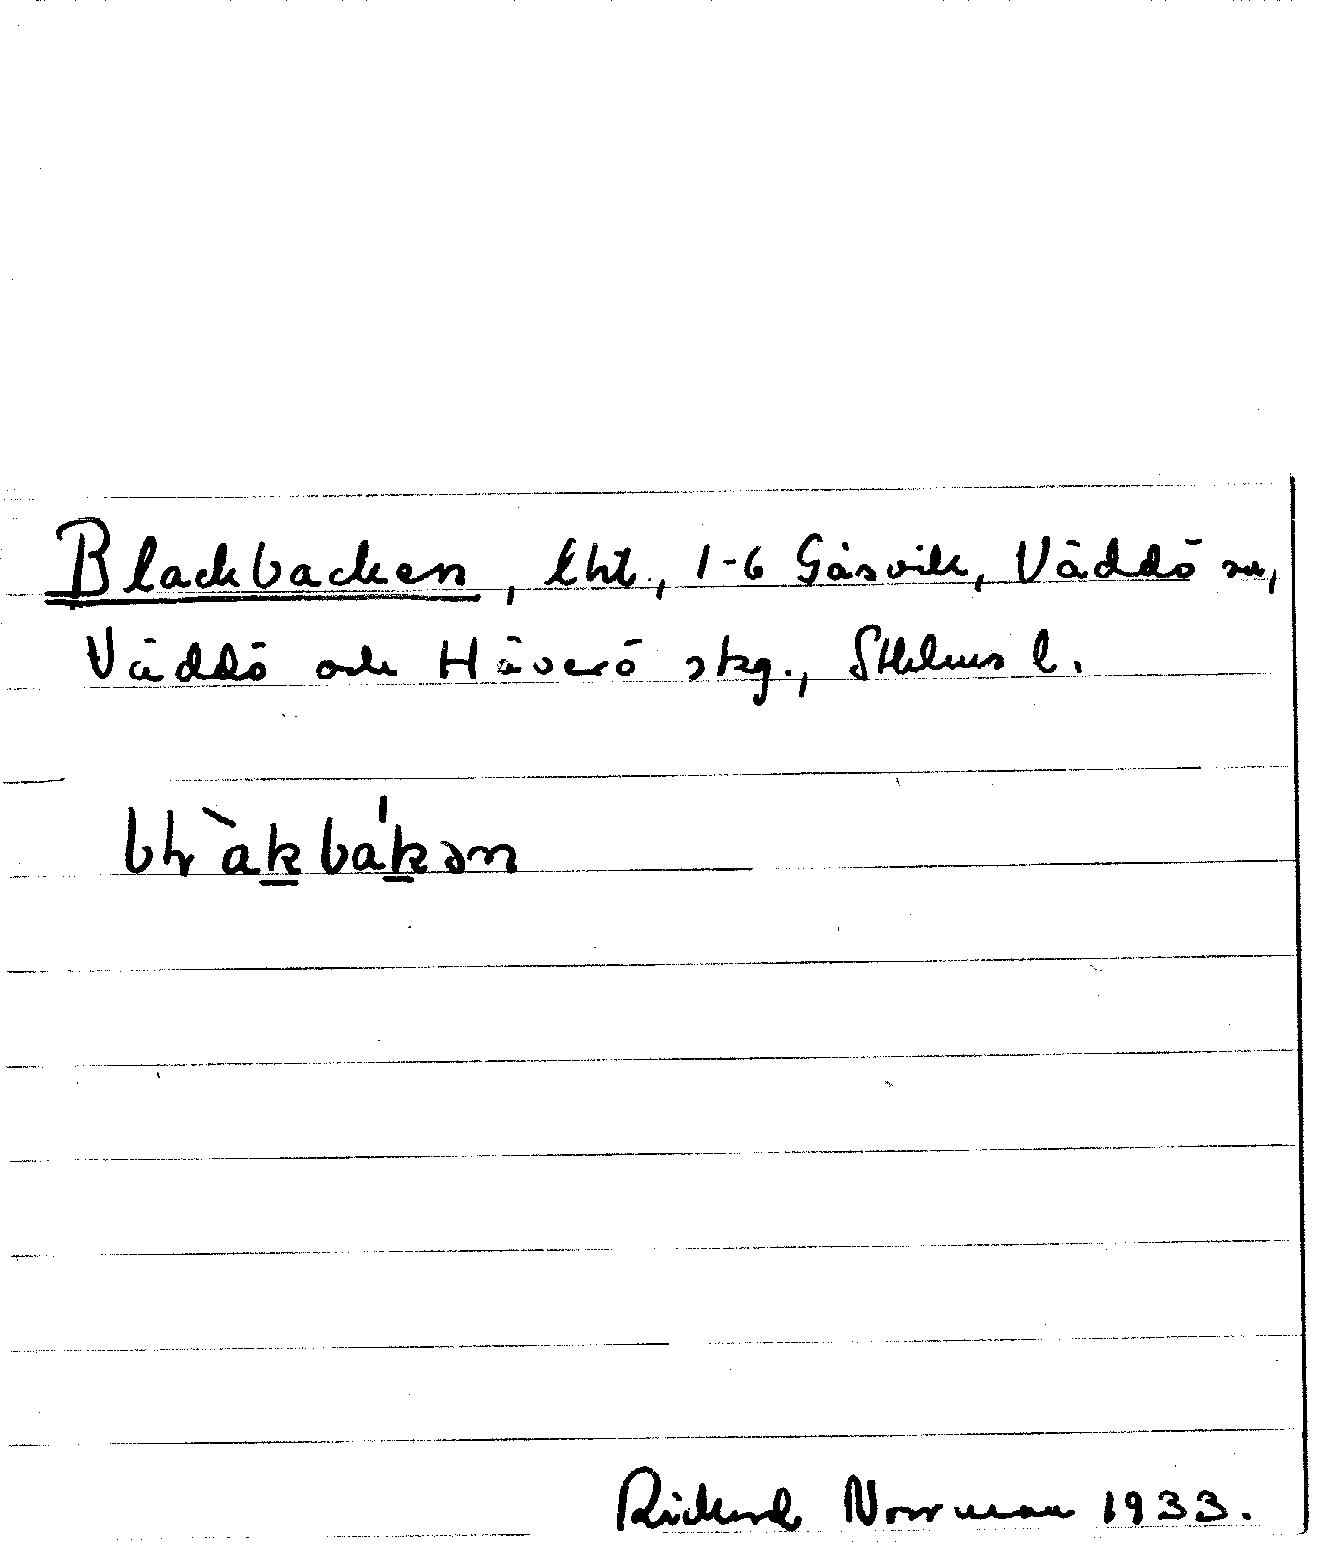 Blackbacken, lht., 1-6 Gåsvik, Väddö sn,
Väddö och Häverö skg., Sthlms l.
Rickard Norrman 1933.